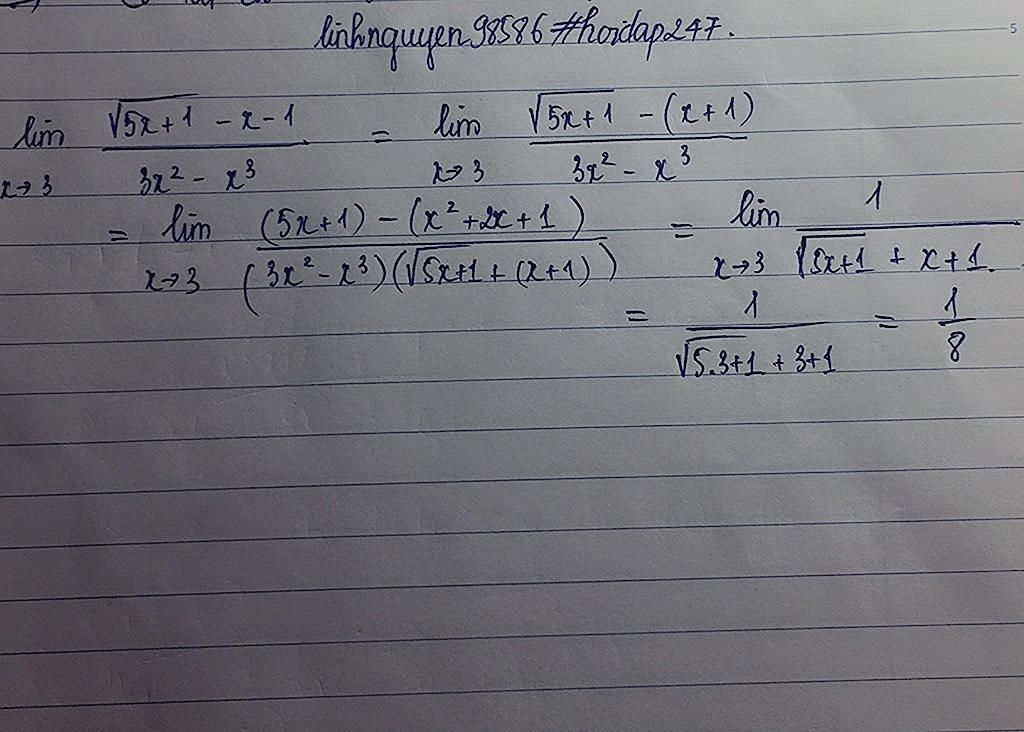 linhnguyen98586#hoidap247.
lim x→3 (√(5x+1) - x - 1)/(3x² - x³) = lim x→3 (√(5x+1) - (x+1))/(3x² - x³)
= lim x→3 ((5x+1) - (x²+2x+1))/((3x² - x³)(√(5x+1) + (x+1))) = lim x→3 1/(√(5x+1) + x+1.)
= 1/(√(5.3+1) + 3+1) = 1/8